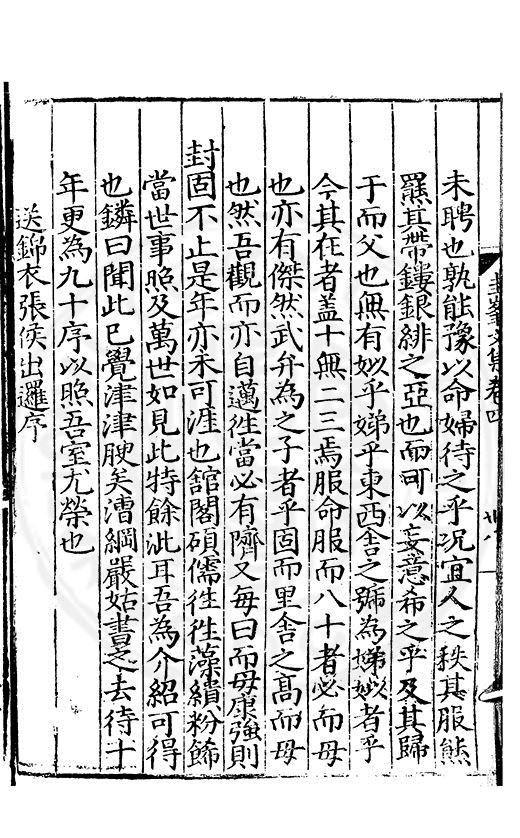 未聘也孰能豫以命婦待之乎况宜人之秩其服熊
羆其帶鏤銀緋之亞也而可以妄意希之乎及其歸
于而父也無有姒乎娣乎東西舍之號為娣姒者乎
今其在者盖十無二三焉服命服而八十者必而母
也亦有傑然武弁為之子者乎固而里舍之高而母
也然吾觀而亦自邁徃當必有隮又每曰而母康強則
封固不止是年亦未可涯也舘閣碩儒徃徃藻繢粉餙
當世事照及萬世如見此特餘沘耳吾為介紹可得
也鏻曰聞此已覺津津腴矣漕綱嚴姑書之去待十
年更為九十序以照吾室尤榮也
送錦衣張侯出邏序
峯文集卷四
卅八